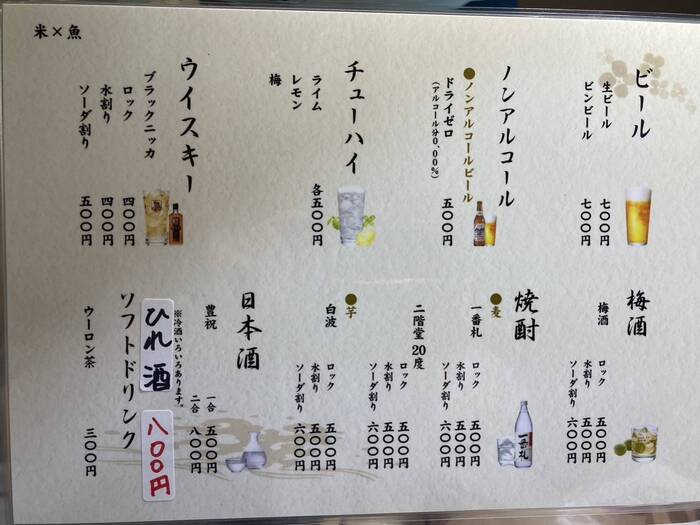 米×魚
ビール
生ビール 七〇〇円
ビンビール 七〇〇円
ノンアルコール
●ノンアルコールビール
ドライゼロ 五〇〇円
(アルコール分0.00%)
チューハイ
ライム 各五〇〇円
レモン
梅
ウイスキー
ブラックニッカ
ロック 四〇〇円
水割り 四〇〇円
ソーダ割り 五〇〇円
梅酒
梅酒
ロック 五〇〇円
水割り 五〇〇円
ソーダ割り 六〇〇円
焼酎
●麦
一番札
ロック 五〇〇円
水割り 五〇〇円
ソーダ割り 六〇〇円
二階堂20度
ロック 五〇〇円
水割り 五〇〇円
ソーダ割り 六〇〇円
●芋
白波
ロック 五〇〇円
水割り 五〇〇円
ソーダ割り 六〇〇円
日本酒
豊祝
一合 五〇〇円
二合 八〇〇円
※冷酒いろいろあります。
ひれ酒 八〇〇円
ソフトドリンク
ウーロン茶 三〇〇円
一番札